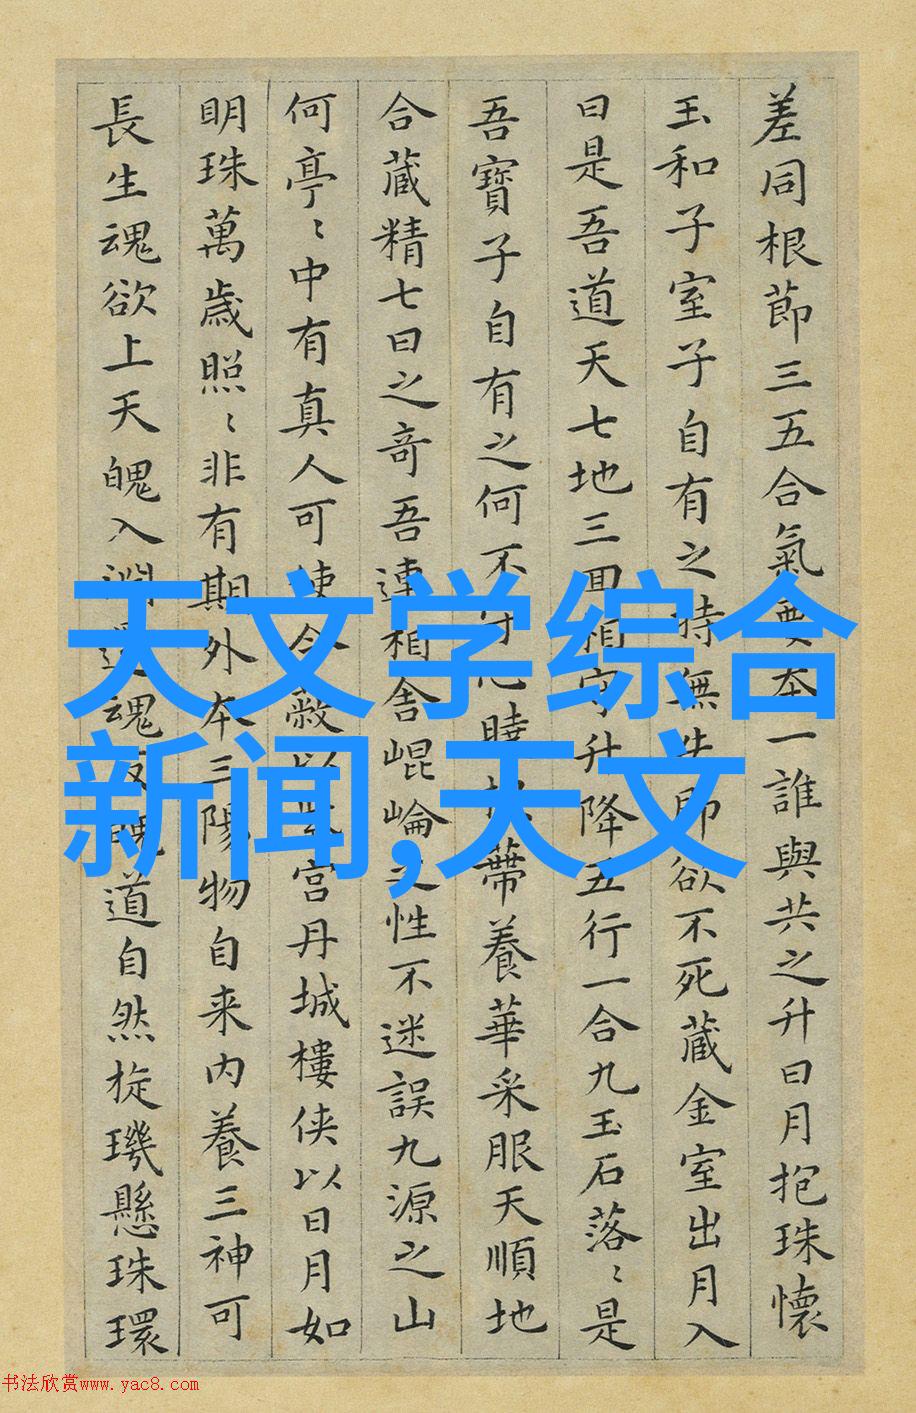 差同根節三五合氣要本一誰與共之升日月抱珠懷
玉和子室子自有之持無失即欲不死藏金室出月入
日是吾道天七地三回相守升降五行一合九玉石落〻是
吾寶子自有之何不守心曉根蔕養華采服天順地
合蔵精七日之奇吾連相舍崐崘之性不迷誤九源之山
何亭〻中有真人可使令蔽以紫宮丹城樓俠以日月如
明珠萬歲照〻非有期外本三陽物自来内養三神可
長生魂欲上天魄入淵還魂反魄道自然旋璣懸珠環
天文学综合
新闻,天文
书法欣赏www.yac8.com